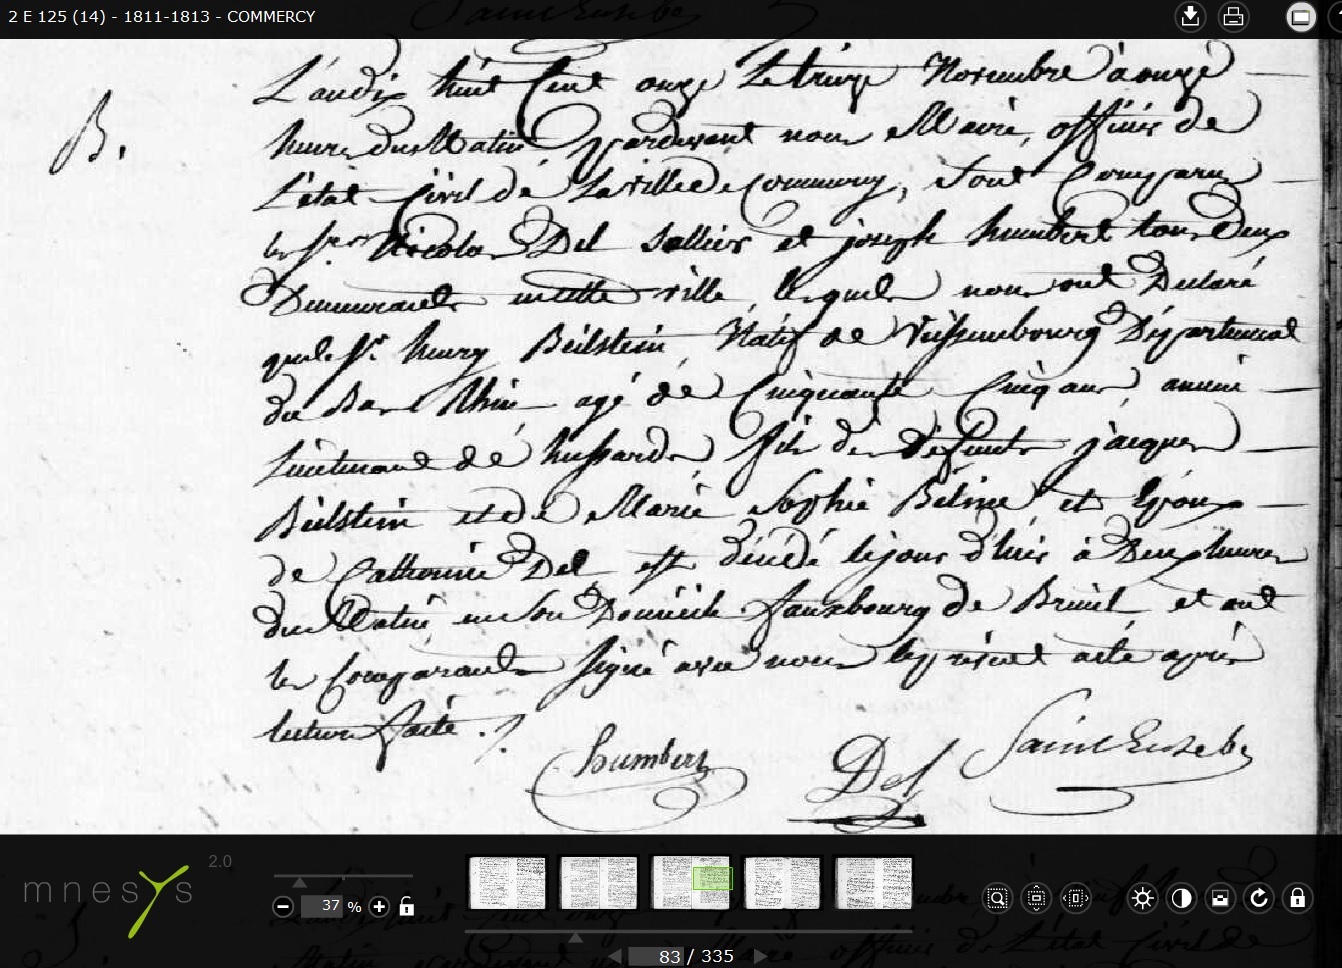 2 E 125 (14) - 1811-1813 - COMMERCY
B.
L'an dix huit Cent onze Le treize Novembre à onze
heures du Matin, pardevant nous Maire, officier de
L'état Civil de La ville de Commercy, Sont Comparus
les Srs Nicolas Del Sellier et joseph humbert tous deux
Demeurants en cette ville, lesquels nous ont Declaré
que le Sr. henry Beilstein, Natif de Wissembourg Département
du Bas Rhin agé de Cinquante Cinq ans, ancien
Lieutenant de hussards fils des défunts jacques
Beilstein et de Marie Sophie et Epoux
de Catherine Del est décédé le jour d'hier à Deux heures
du Matin en Son Domicile fauxbourg de Breuil et ont
les Comparants Signé avec nous le présent acte après
lecture faite.
humbert
Del
SaintEusebe
mnesys 2.0
37 %
83 / 335